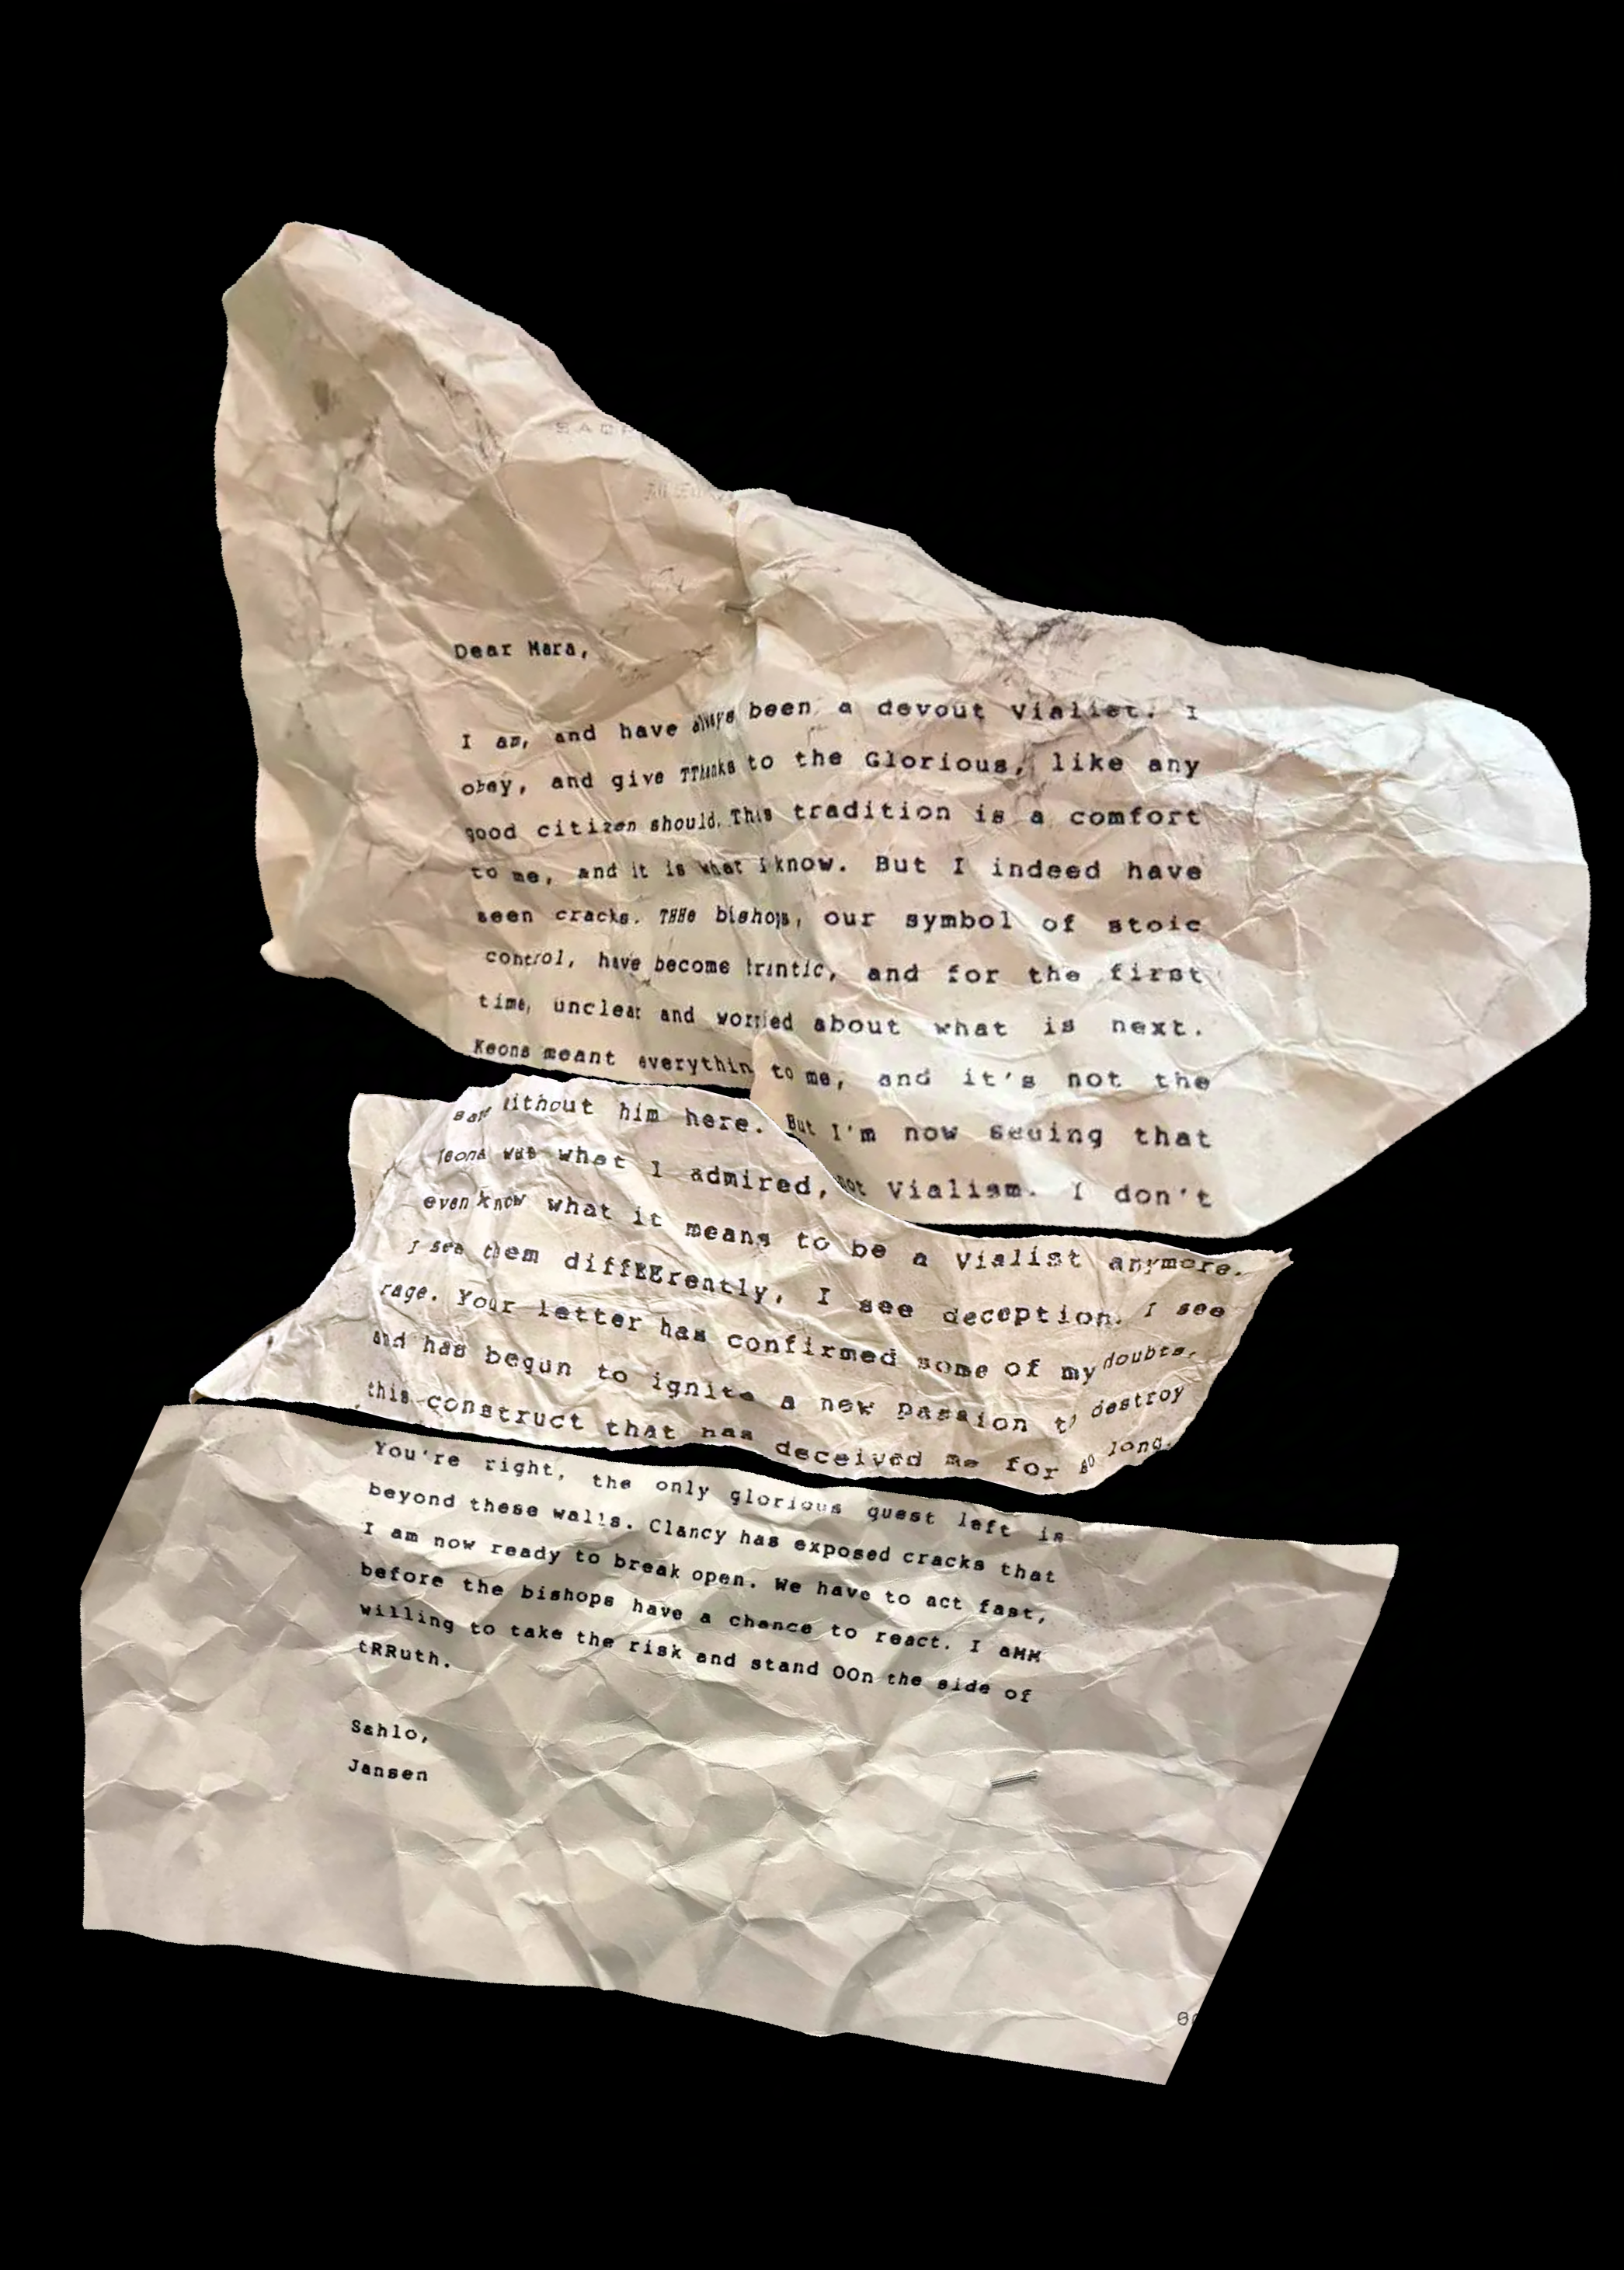 SACR
Dear Mara,
I am, and have always been a devout Vialist. I
obey, and give TThanks to the Glorious, like any
good citizen should. This tradition is a comfort
to me, and it is what i know. But I indeed have
seen cracks. THHe bishops, our symbol of stoic
control, have become frantic, and for the first
time, unclear and worried about what is next.
Keons meant everythin to me, and it's not the
same without him here. But I'm now seeing that
Keons was what I admired, not Vialism. I don't
even know what it means to be a Vialist anymore.
I see them diffEErently, I see deception. I see
rage. Your letter has confirmed some of my doubts,
and has begun to ignite a new passion to destroy
this construct that has deceived me for so long.
You're right, the only glorious quest left is
beyond these walls. Clancy has exposed cracks that
I am now ready to break open. We have to act fast,
before the bishops have a chance to react. I aMM
willing to take the risk and stand OOn the side of
tRRuth.
Sahlo,
Jansen